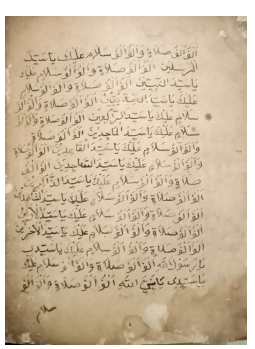 اَلْفُ اَلْفِ صَلَاةٍ وَاَلْفُ اَلْفِ سَلَامٍ عَلَيْكَ يَا سَيِّدَ
الْمُرْسَلِينَ اَلْفُ اَلْفِ صَلَاةٍ وَاَلْفُ اَلْفِ سَلَامٍ عَلَيْكَ
يَا سَيِّدَ النَّبِيِّينَ اَلْفُ اَلْفِ صَلَاةٍ وَاَلْفُ اَلْفِ سَلَامٍ
عَلَيْكَ يَا سَيِّدَ الصِّدِّيقِينَ اَلْفُ اَلْفِ صَلَاةٍ وَاَلْفُ اَلْفِ
سَلَامٍ عَلَيْكَ يَا سَيِّدَ الرَّاكِعِينَ اَلْفُ اَلْفِ صَلَاةٍ وَاَلْفُ اَلْفِ
سَلَامٍ عَلَيْكَ يَا سَيِّدَ اَلْفُ اَلْفِ صَلَاةٍ
وَاَلْفُ اَلْفِ سَلَامٍ عَلَيْكَ يَا سَيِّدَ الْقَاعِدِينَ اَلْفُ اَلْفِ صَلَاةٍ
وَاَلْفُ اَلْفِ سَلَامٍ عَلَيْكَ يَا سَيِّدَ اَلْفُ اَلْفِ
صَلَاةٍ وَاَلْفُ اَلْفِ سَلَامٍ عَلَيْكَ يَا سَيِّدَ الذَّاكِرِينَ
اَلْفُ اَلْفِ صَلَاةٍ وَاَلْفُ اَلْفِ سَلَامٍ عَلَيْكَ يَا سَيِّدَ
اَلْفُ اَلْفِ صَلَاةٍ وَاَلْفُ اَلْفِ سَلَامٍ عَلَيْكَ يَا سَيِّدَ
اَلْفُ اَلْفِ صَلَاةٍ وَاَلْفُ اَلْفِ سَلَامٍ عَلَيْكَ يَا سَيِّدَ الْآخِرِينَ
اَلْفُ اَلْفِ صَلَاةٍ وَاَلْفُ اَلْفِ سَلَامٍ عَلَيْكَ يَا سَيِّدِي
يَا رَسُولَ اللهِ اَلْفُ اَلْفِ صَلَاةٍ وَاَلْفُ اَلْفِ سَلَامٍ عَلَيْكَ
يَا سَيِّدِي يَا نَبِيَّ اللهِ اَلْفُ اَلْفِ صَلَاةٍ وَاَلْفُ اَلْفِ
سلام